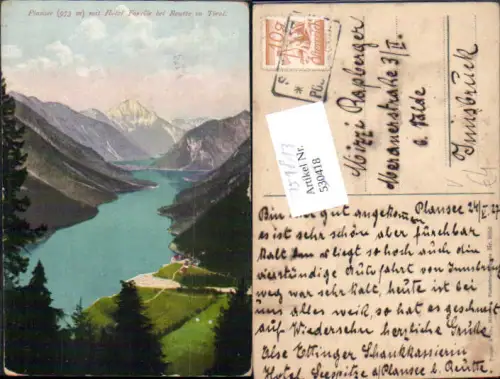 Plansee (973 m) mit Hotel Forelle bei Reutte in Tirol.
Artikel Nr.
530418
Mizzi Rapberger
Meranerstraße 3/II.
b. Valde
Innsbruck
Plansee 24/II.27
Bin hier gut angekommen
es ist sehr schön aber furchbar
kalt denn da liegt so hoch auch die
vierstündige Autofahrt von Innsbruck
weg war sehr kalt, heute ist bei
uns alles weiß, so hat es geschneit
auf Wiedersehn herzliche Grüße
Else Ettinger Schankkassierin
Hotel Seespitze a/Plansee b. Reutte.